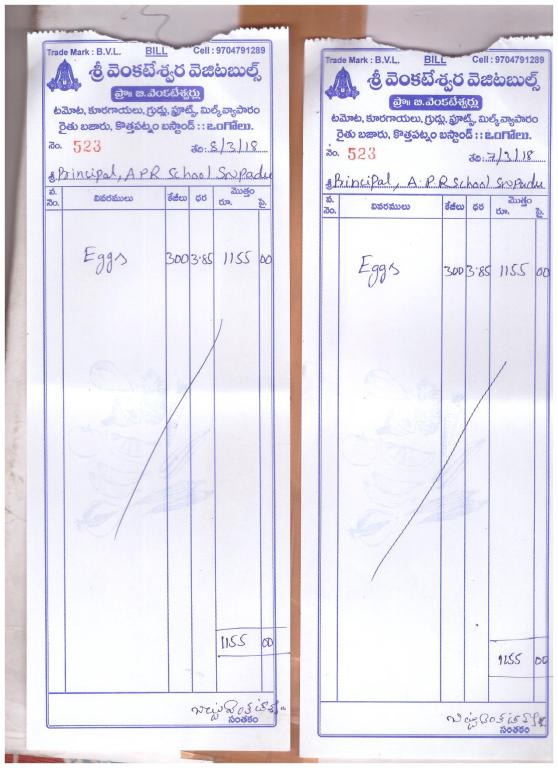 Trade Mark : B.V.L. BILL Cell : 9704791289
శ్రీ వెంకటేశ్వర వెజిటబుల్స్
ప్రొః బి.వెంకటేశ్వర్లు
టమోట, కూరగాయలు, గ్రుడ్లు, ఫ్రూట్స్, మిల్క్ వ్యాపారం
రైతు బజారు, కొత్తపట్నం బస్టాండ్ :: ఒంగోలు.
నెం. 523 తేది: 8/3/18
శ్రీ Principal, A P R School
వ. నెం. వివరములు కేజీలు ధర మొత్తం రూ. పై.
Eggs 300 3.85 1155 00
1155 00
సంతకం
Trade Mark : B.V.L. BILL Cell : 9704791289
శ్రీ వెంకటేశ్వర వెజిటబుల్స్
ప్రొః బి.వెంకటేశ్వర్లు
టమోట, కూరగాయలు, గ్రుడ్లు, ఫ్రూట్స్, మిల్క్ వ్యాపారం
రైతు బజారు, కొత్తపట్నం బస్టాండ్ :: ఒంగోలు.
నెం. 523 తేది: 7/3/18
శ్రీ Principal, A.P.R School
వ. నెం. వివరములు కేజీలు ధర మొత్తం రూ. పై.
Eggs 300 3.85 1155 00
1155 00
సంతకం